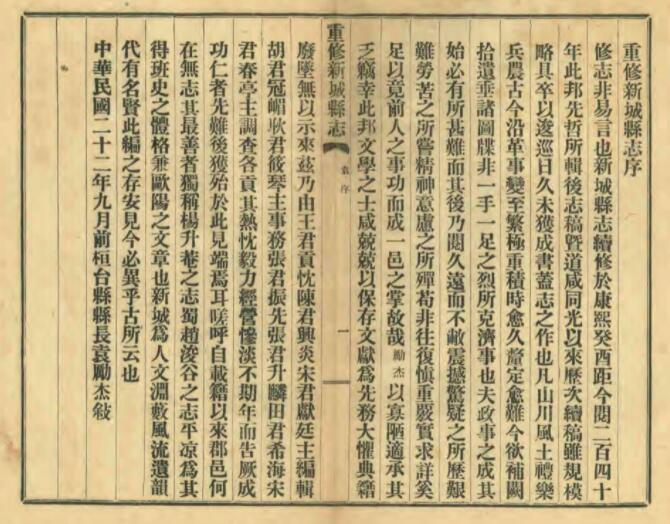 重修新城縣志序
修志非易言也新城縣志續修於康熙癸酉距今閱二百四十
年此邦先哲所輯後志稿暨道咸同光以來歷次續稿雖規模
略具卒以逡巡日久未獲成書蓋志之作也凡山川風土禮樂
兵農古今沿革事變至繁極重積時愈久釐定愈難今欲補闕
拾遺垂諸圖牒非一手一足之烈所克濟事也夫政事之成其
始必有所甚難而其後乃閱久遠而不敝震撼驚疑之所歷艱
難勞苦之所嘗精神意慮之所殫苟非往復慎重覈實求詳奚
足以竟前人之事功而成一邑之掌故哉勵杰以寡陋適承其
乏竊幸此邦文學之士咸兢兢以保存文獻為先務大懼典籍
重修新城縣志
袁序
一
廢墜無以示來茲乃由王君貢忱陳君興炎宋君獻廷主編輯
胡君冠嵋耿君筱琴主事務張君振先張君升麟田君希海宋
君春亭主調查各貢其熱忱毅力經營慘淡不期年而告厥成
功仁者先難後獲始於此見端焉耳嗟呼自載籍以來郡邑何
在無志其最善者獨稱楊升菴之志蜀趙浚谷之志平涼為其
得班史之體格兼歐陽之文章也新城為人文淵藪風流遺韻
代有名賢此編之存安見今必異乎古所云也
中華民國二十二年九月前桓台縣縣長袁勵杰敘